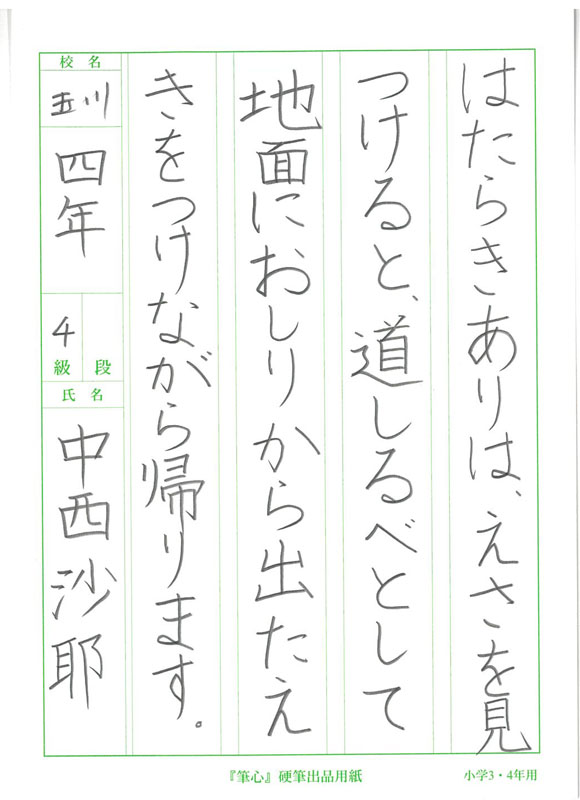 はたらきありは、えさを見
つけると、道しるべとして
地面におしりから出たえ
きをつけながら帰ります。
校名
玉川
四年
4
級 段
氏名
中西沙耶
『筆心』硬筆出品用紙
小学3・4年用